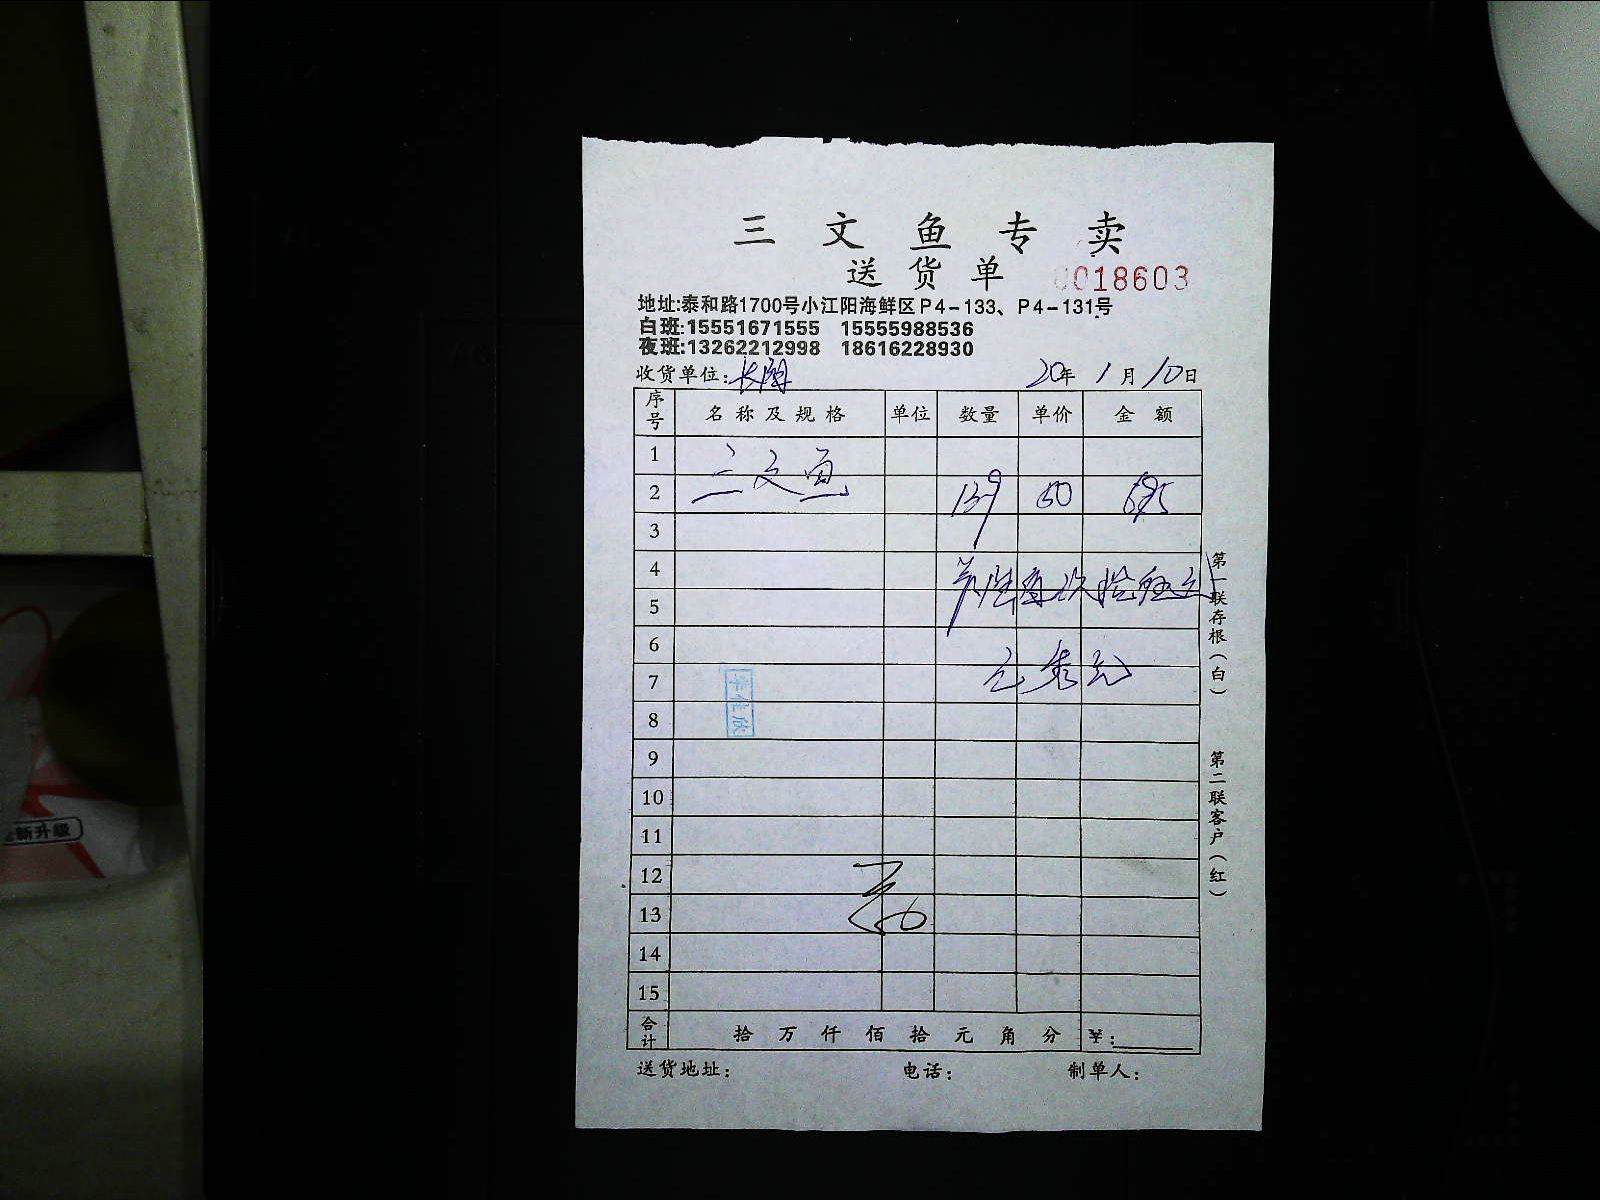 三文鱼专卖
送货单 0018603
地址:泰和路1700号小江阳海鲜区P4-133、P4-131号
白班:15551671555 15555988536
夜班:13262212998 18616228930
收货单位: 20年1月10日
序号 名称及规格 单位 数量 单价 金额
1
三文鱼
2 139 50 695
3
4
5
6
7
8
9
10
11
12
13
14
15
合计 拾万仟佰拾元角分 ¥:
送货地址: 电话: 制单人:
第一联存根(白)
第二联客户(红)
新升級